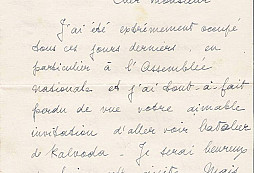 Cher Monsieur
J'ai été extrêmement occupé
tous ces jours derniers, en
particulier à l'Assemblée
nationale et j'ai tout-à-fait
perdu de vue votre aimable
invitation d'aller voir l'atelier
de Kalvoda - Je serai heureux
Mais